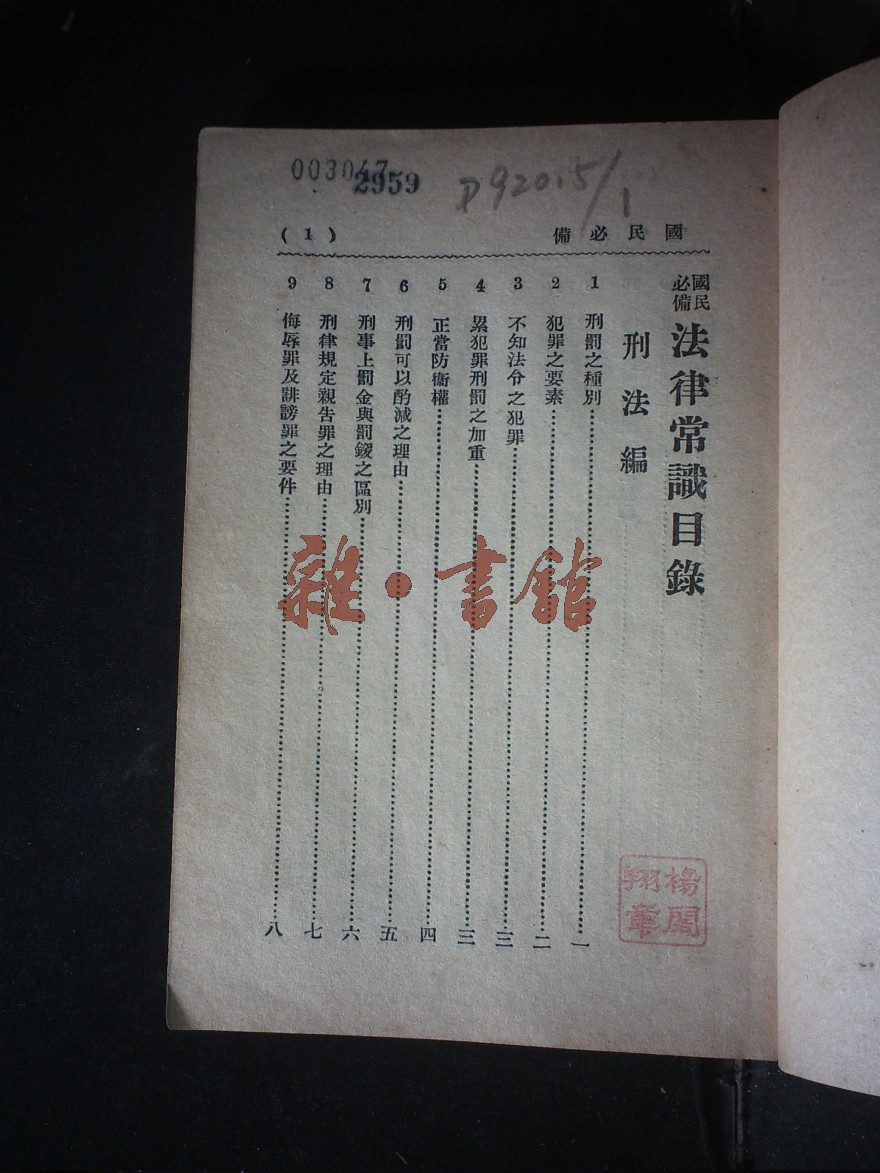 003047
2959
D920.5/1
國民必備
(1)
國民必備 法律常識目錄
刑法編
1 刑罰之種別 一
2 犯罪之要素 二
3 不知法令之犯罪 三
4 累犯罪刑罰之加重 三
5 正當防衞權 四
6 刑罰可以酌減之理由 五
7 刑事上罰金與罰鍰之區別 六
8 刑律規定親告罪之理由 七
9 侮辱罪及誹謗罪之要件 八
雜·書館
楊閣
翔章